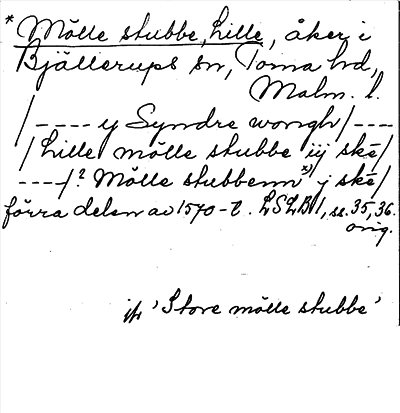 * Mölle stubbe, Lille, åker i
Bjällerups sn, Torna hd,
Malm. l.
/---- y Syndre wongh/----
/Lille mölle stubbe iij ske/
----/? Mölle stubbenn x) j ske/
förra delen av 1570-t. LSLB 1, ss. 35, 36.
orig.
jfr 'Store mölle stubbe'